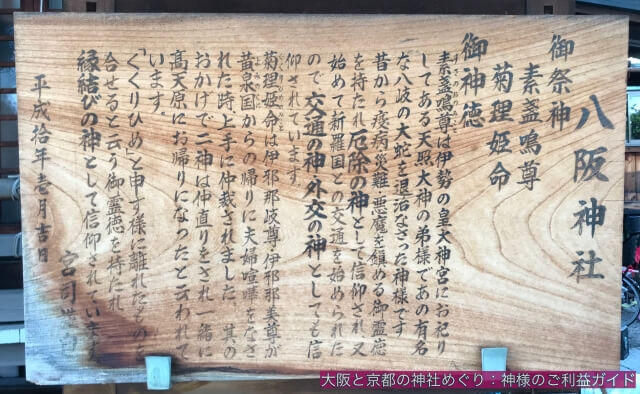 八阪神社
御祭神
素盞鳴尊
菊理姫命
御神徳
素盞鳴尊は伊勢の皇大神宮にお祀り
してある天照大神の弟様であの有名
な八岐の大蛇を退治なさった神様です
昔から疫病災難、悪魔を鎮める御霊徳
を持たれ厄除の神として信仰され又
始めて新羅国との交通を始められた
ので交通の神外交の神としても信
仰されています。
菊理姫命は伊邪那岐尊伊邪那美尊が
黄泉国からの帰りに夫婦喧嘩をなさ
れた時上手に仲裁されました。其の
おかげで二神は仲直りをされ一緒に
高天原にお帰りになったと云われて
います。
「くくりひめ」と申す様に離れたものを
合せると云う御霊徳を持たれ
縁結びの神として信仰されています
平成拾年壱月吉日
宮司
大阪と京都の神社めぐり：神様のご利益ガイド